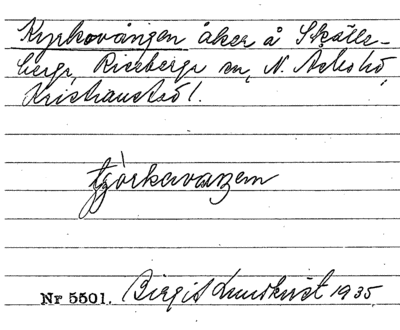 Kyrkovången åker å Skälle-
berga, Riseberga sn, N. Åsbo hd
Kristianstad l.
Nr 5501. Birgit Lundkvist 1935.